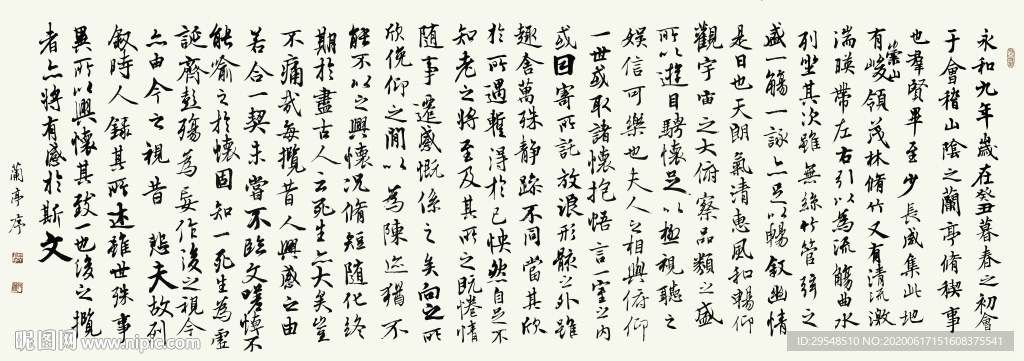 永和九年歲在癸丑暮春之初會
于會稽山陰之蘭亭脩稧事
也羣賢畢至少長咸集此地
有崇山峻領茂林脩竹又有清流激
湍暎帶左右引以為流觴曲水
列坐其次雖無絲竹管弦之
盛一觴一詠亦足以暢敘幽情
是日也天朗氣清惠風和暢仰
觀宇宙之大俯察品類之盛
所以遊目騁懷足以極視聽之
娛信可樂也夫人之相與俯仰
一世或取諸懷抱悟言一室之內
或因寄所託放浪形骸之外雖
趣舍萬殊靜躁不同當其欣
於所遇暫得於己怏然自足不
知老之將至及其所之既惓情
随事遷感慨係之矣向之所
欣俛仰之閒以為陳迹猶不
能不以之興懷況脩短随化終
期於盡古人云死生亦大矣豈
不痛哉每攬昔人興感之由
若合一契未嘗不臨文嗟悼不
能喻之於懷固知一死生為虛
誕齊彭殤為妄作後之視今
亦由今之視昔悲夫故列
敘時人錄其所述雖世殊事
異所以興懷其致一也後之攬
者亦將有感於斯文
蘭亭序
昵图网 www.nipic.com
ID:29548510 NO:20200617151608375541